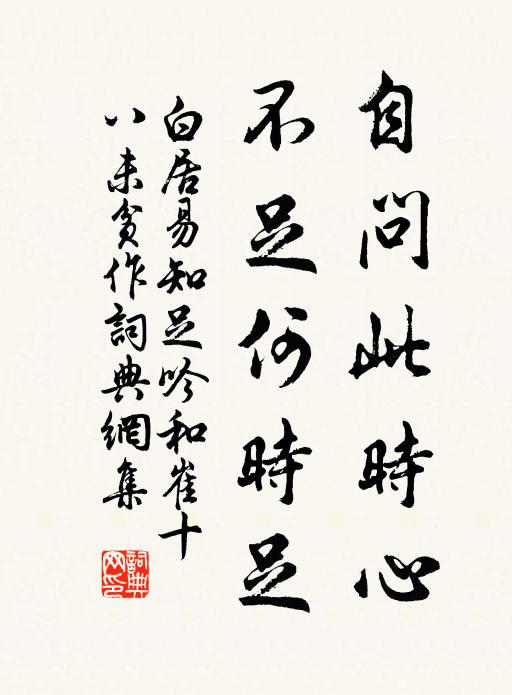 自問此時心
不足何時足
白居易知足吟和崔十
八未貧作詞典網集
詞典
网印